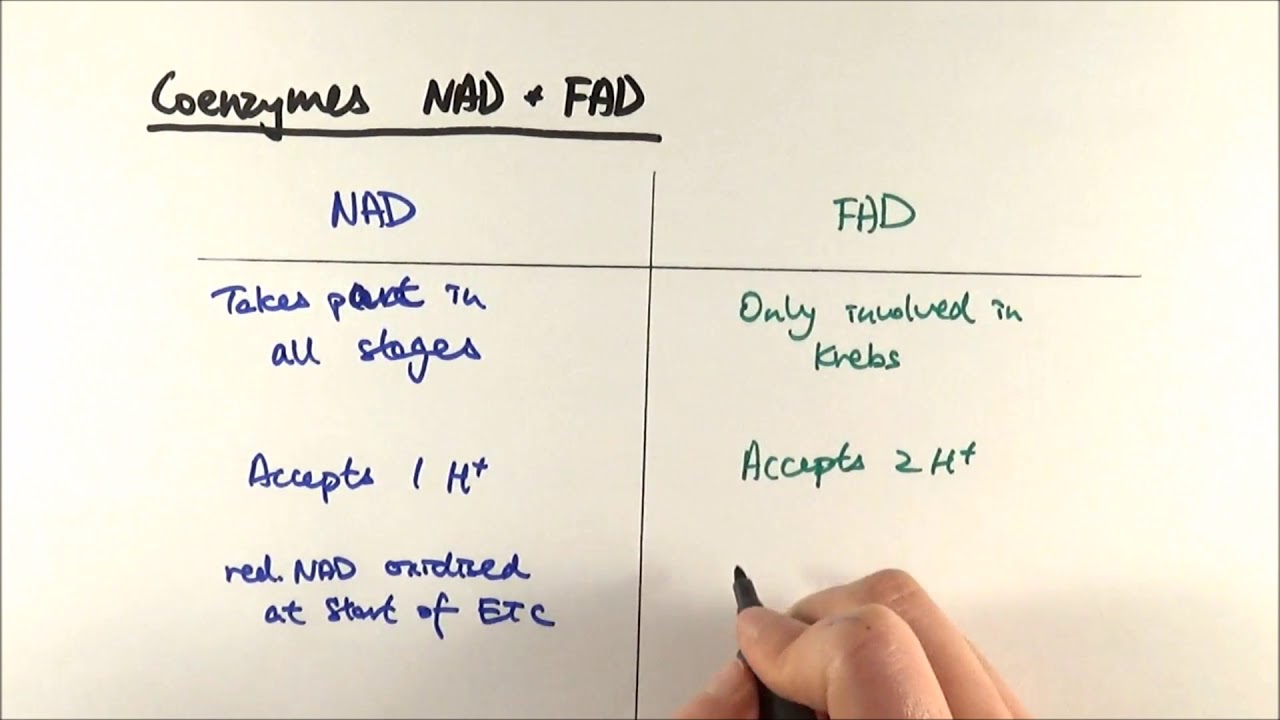 Coenzymes NAD + FAD
NAD
FAD
Takes part in
all stages
Only involved in
Krebs
Accepts 1 H+
Accepts 2 H+
red. NAD oxidised
at start of ETC